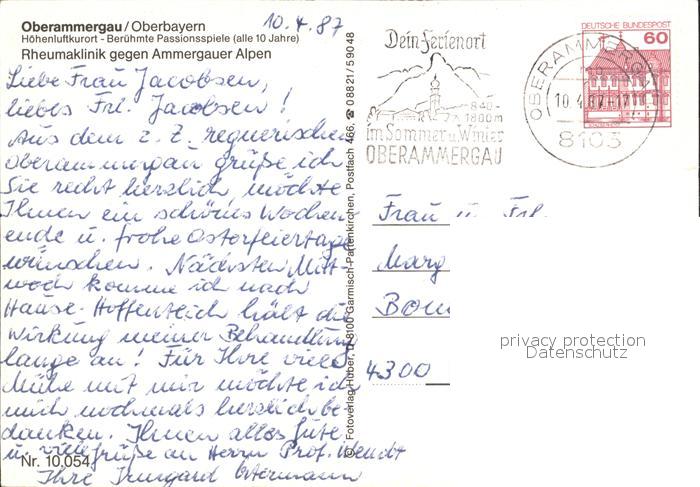 Oberammergau/Oberbayern
Höhenluftkurort - Berühmte Passionsspiele (alle 10 Jahre)
Rheumaklinik gegen Ammergauer Alpen
10.4.87
Liebe Frau Jacobsen,
liebes Frl. Jacobsen!
Aus dem z. Z. regnerischen
Oberammergau grüße ich
Sie recht herzlich, möchte
Ihnen ein schönes Wochen-
ende u. frohe Osterfeiertage
wünschen. Nächsten Mitt-
woch komme ich nach
Hause. Hoffentlich hält die
Wirkung meiner Behandlung
lange an! Für Ihre viele
Mühe mit mir möchte ich
mich nochmals herzlich be-
danken. Ihnen alles Gute
u. viele Grüße an Herrn Prof. Wendt
Ihre Irmgard Ostermann
Nr. 10.054
© Fotoverlag Huber, D-8100 Garmisch-Partenkirchen, Postfach 466, ☎ 0 88 21 / 5 90 48
Dein Ferienort
840-
1800m
im Sommer u. Winter
OBERAMMERGAU
OBERAMMERGAU
10.4.87-17
8103
DEUTSCHE BUNDESPOST
60
Frau u. Frl.
Marg
4300
privacy protection
Datenschutz